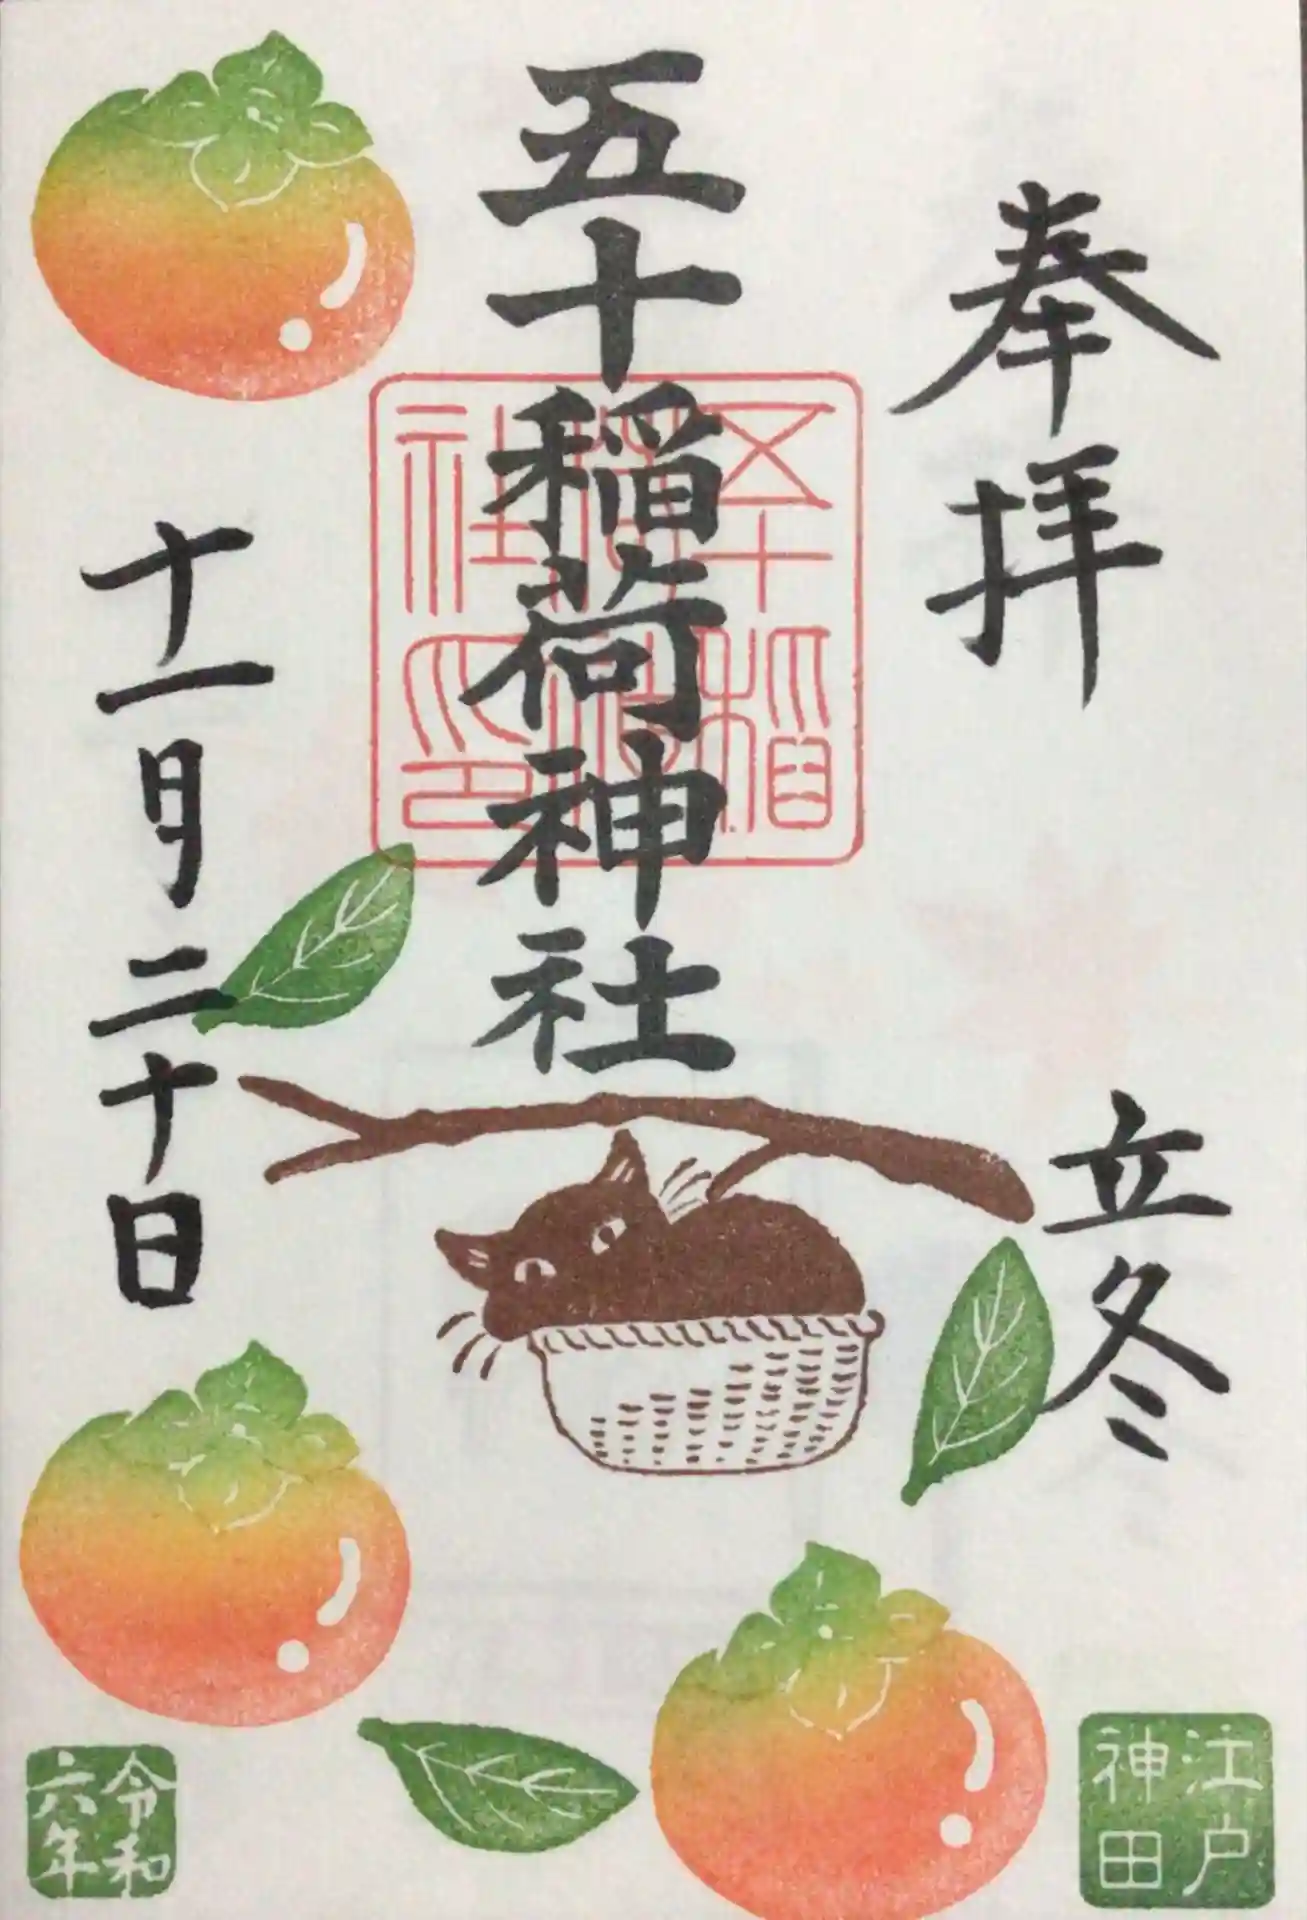 奉拝
立冬
五十稲荷神社
十一月二十日
江戸
神田
令和
六年